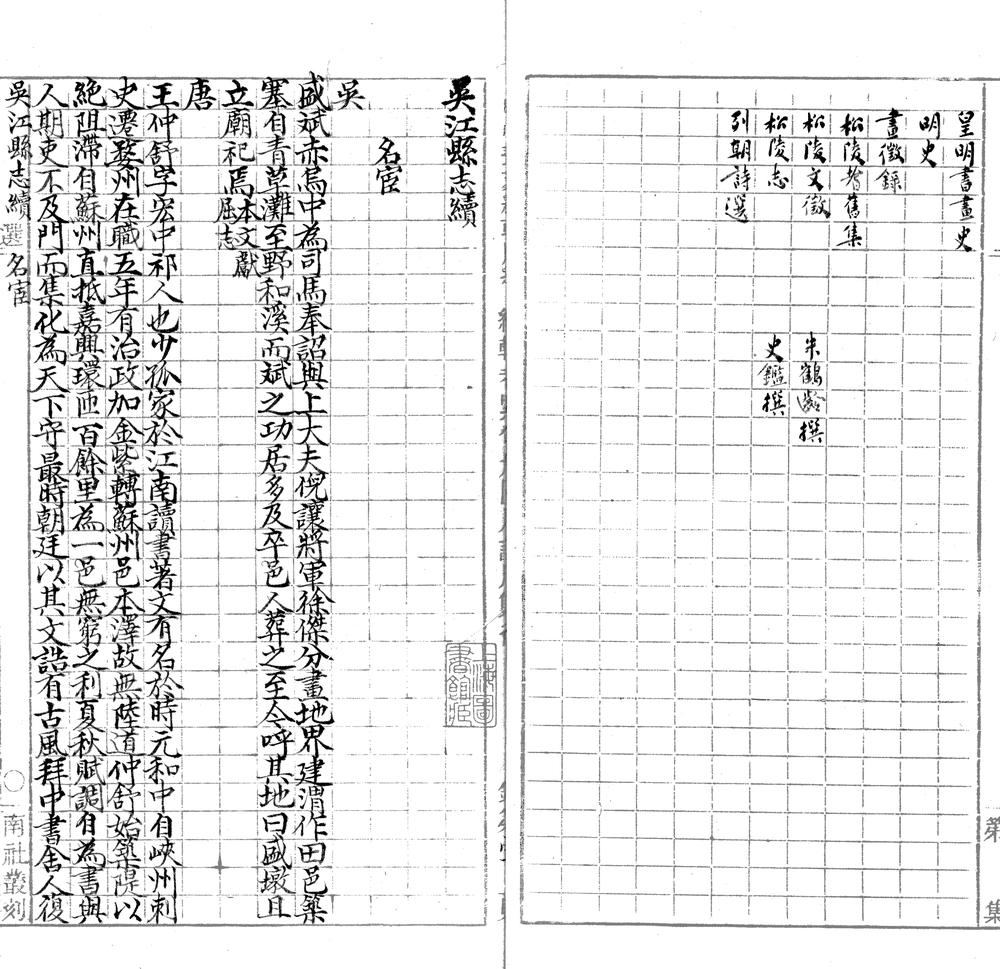 皇明書畫史
明史
畫徵錄
松陵耆舊集
松陵文徵　朱鶴齡撰
松陵志　史鑑撰
列朝詩選
第　集
吳江縣志續
名宦
吳
盛斌赤烏中為司馬奉詔與上大夫倪讓將軍徐傑分畫地界建渭作田邑築
塞自青草灘至野和溪而斌之功居多及卒邑人葬之至今呼其地曰盛墩且
立廟祀焉本文獻屈志
唐
王仲舒字宏中祁人也少孤家於江南讀書著文有名於時元和中自峽州刺
史遷婺州在職五年有治政加金紫轉蘇州邑本澤故無陸道仲舒始築隄以
絕阻滯自蘇州直抵嘉興環匝百餘里為一邑無窮之利夏秋賦調自為書與
人期吏不及門而集化為天下守最時朝廷以其文誥有古風拜中書舍人復
吳江縣志續　選　名宦　南社叢刻